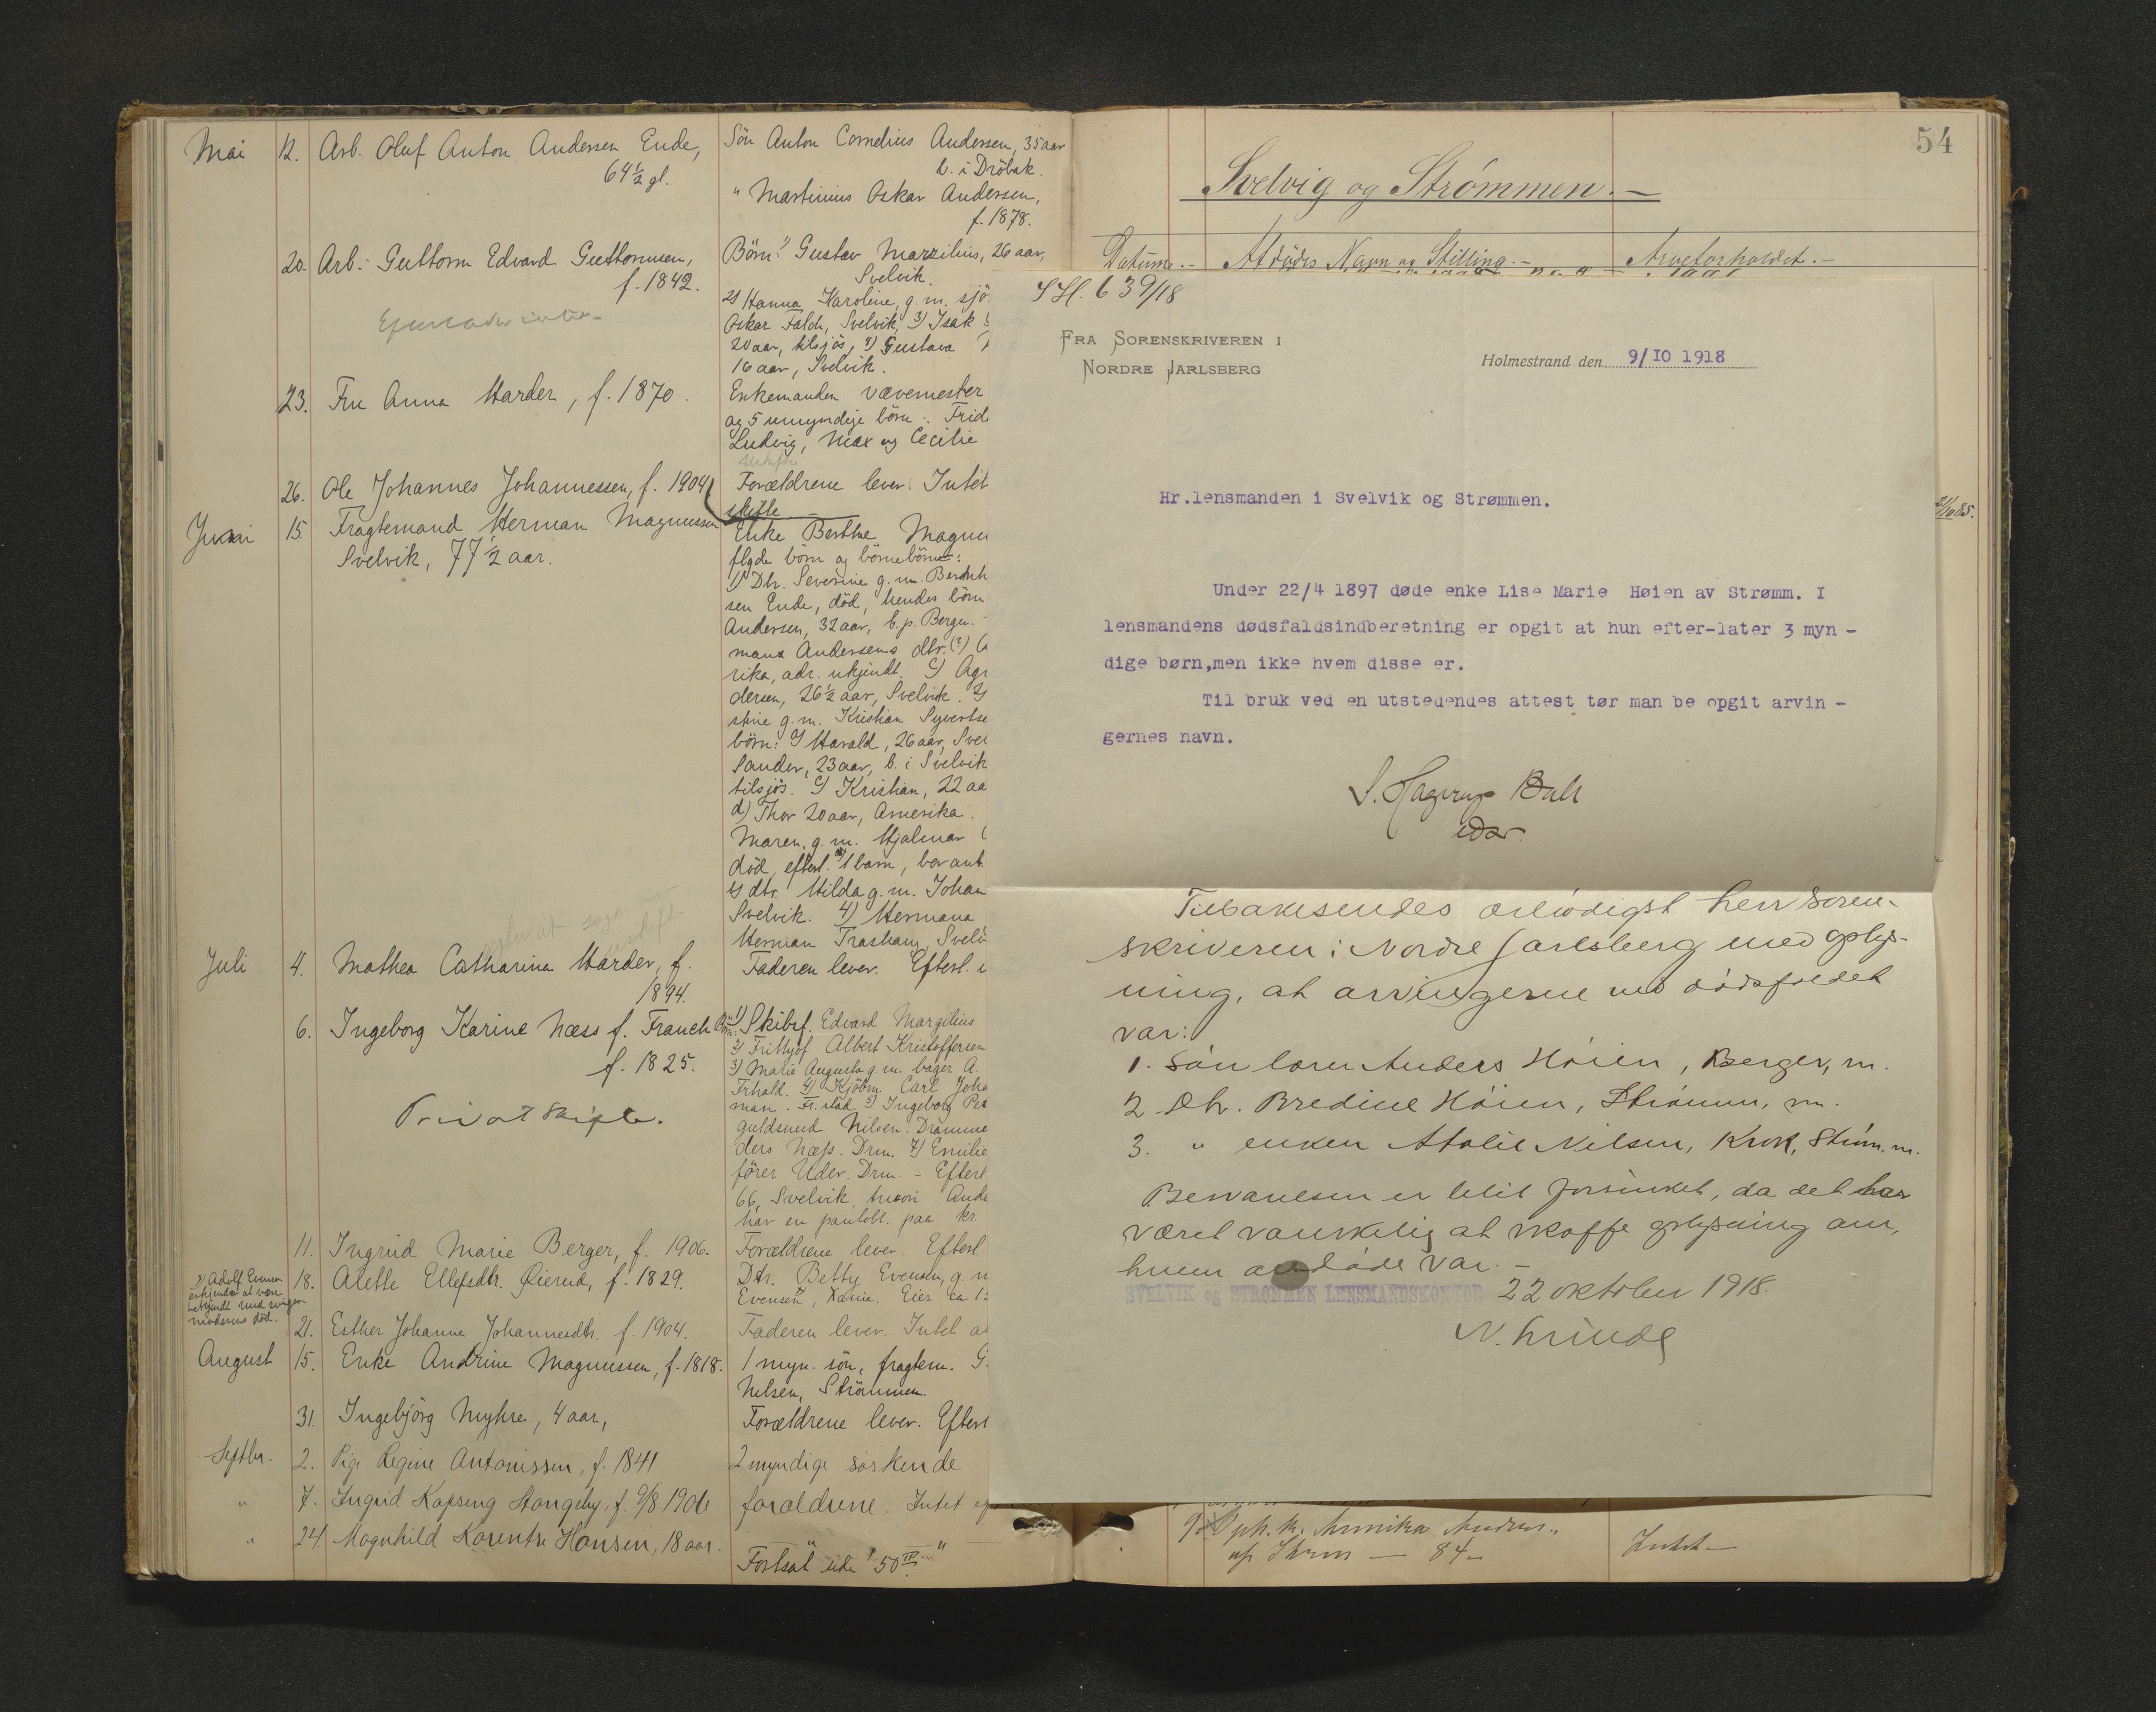 Mai 12. Arb. Oluf Anton Andersen Ende,
64½ gl.
Sön Anton Cornelius Andersen, 35 aar
b. i Dröbak.
" Martinius Oskar Andersen,
f. 1878.
20. Arb. Guttorm Edvard Guttormsen,
f. 1842.
Börn: 1) Gustav Marzilius, 26 aar,
Svelvik.
2) Hanna Karoline, g. m. sjö
Oskar Falch, Svelvik, 3) Isak
20 aar, tilsjös, 4) Gustava
16 aar, Svelvik.
23. Fru Anna Harder, f. 1870.
Enkemanden vævemester
og 5 umyndige börn: Frid
Ludvig, Max og Cecilie
26. Ole Johannes Johannessen, f. 1904
Forældrene lever. Intet
skifte
Juni 15. Fragtemand Herman Magnussen
Svelvik, 77½ aar.
Enke Berthe Magnu
flgde börn og börnebörn:
1) Dtr. Severine g. m. Bernh
sen Ende, död, hendes börn
Andersen, 32 aar, b. p. Berger.
mana Andersens dtr. (?)
rika, adr. ukjendt. c) Agn
dersen, 26½ aar, Svelvik. 2)
stine g. m. Kristian Syvertse
börn: a) Harald, 26 aar, Svel
Sander, 23 aar, b. i Svelvik
tilsjös. c) Kristian, 22 aa
d) Thor 20 aar, Amerika.
Maren, g. m. Hjalmar
död, efterl. 1 barn, bor ant.
dtr. Hilda g. m. Johan
Svelvik. 4) Hermana
Herman Trashaug, Svelv
Juli 4. Mathea Catharina Harder, f.
1894.
Faderen lever. Efterl. i
6. Ingeborg Karine Næss f. Franck
f. 1825.
Privat skifte.
Börn: 1) Skibsf. Edvard Margilius
2) Frithjof Albert Kristoffersen
3) Marie Augusta g. m. bager A.
Frhald. 4) Kjöbm. Carl Joha
man. Fr.stad 5) Ingeborg
guldsmed Nilsen. Dramme
ders Næss. Drm. 7) Emilie
förer Uder. Drm. - Efterl
66, Svelvik, hvori Ande
har en pantobl. paa kr.
11. Ingrid Marie Berger, f. 1906.
Forældrene lever. Efterl
x) Adolf Evensen
erkjender at være
bekjendt med sviger-
moderens död.
18. Alette Ellefsdtr. Øierud, f. 1829.
Dtr. Betty Evensen, g. m
Evensen, Eier ca
21. Esther Johanne Johannesdtr. f. 1904.
Faderen lever. Intet at
August 15. Enke Andrine Magnussen, f. 1818.
1 myn. sön, fragtem. G.
Nelsen, Strömmen.
31. Ingebjörg Myhre, 4 aar,
Forældrene lever. Efterl
Septbr. 2. Pige Regine Antonissen, f. 1841
2 myndige söskende
" 7. Ingrid Kopseng Stangeby, f. 9/8 1906
forældrene. Intet
" 24. Magnhild Karentse Hansen, 18 aar.
Fortsat side 50
54
Svelvig og Strömmen.—
Datum.— Afdödes Navn og Stilling.— Arveforholdet.—
639/18
FRA SORENSKRIVEREN I
NORDRE JARLSBERG
Holmestrand den 9/10 1918
Hr.lensmanden i Svelvik og Strømmen.
Under 22/4 1897 døde enke Lise Marie Høien av Strømm. I
lensmandens dødsfaldsindberetning er opgit at hun efter-later 3 myn -
dige børn,men ikke hvem disse er.
Til bruk ved en utstedendes attest tør man be opgit arvin -
gernes navn.
S. Hagerup Bull
Tilbakesendes ærbödigst herr soren-
skriveren i Nordre Jarlsberg med oplys-
ning, at arvingerne ved dödsfaldet
var:
1. Sön Anders Höien, Berger, m.
2 Dtr. Bredine Höien, Strömm, m.
3. " enken Atalie Nilsen, Krok, Ström. m.
Besvarelsen er blit forsinket, da det har
været vanskelig at skaffe oplysning om,
hvem avdöde var. —
SVELVIK og STRØMMEN LENSMANDSKONTOR 22 oktober 1918.
N. Grinde
Annika Andrea
af Strm — 84— Intet—